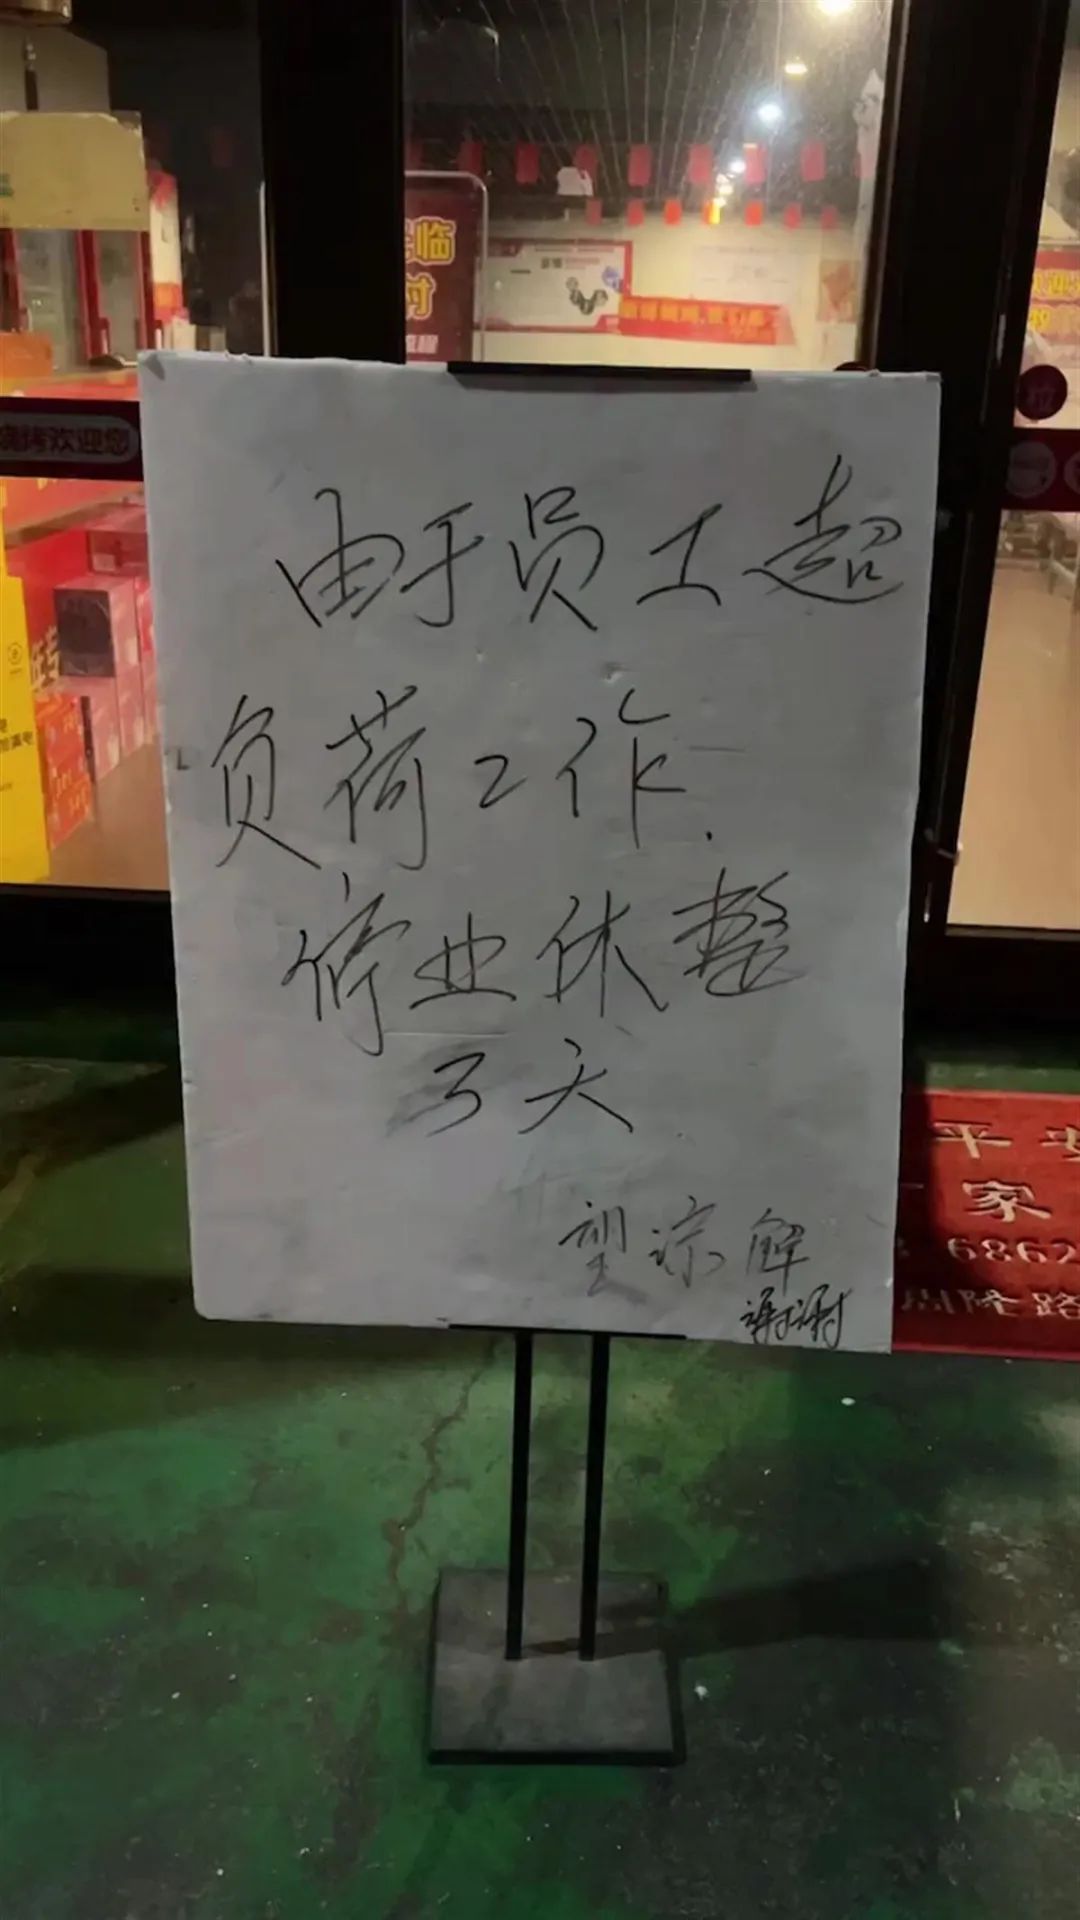 临
时
烧烤欢迎您
由于员工超
负荷工作.
停业休整
3天
望谅解
谢谢
平安
家
6862
隆路